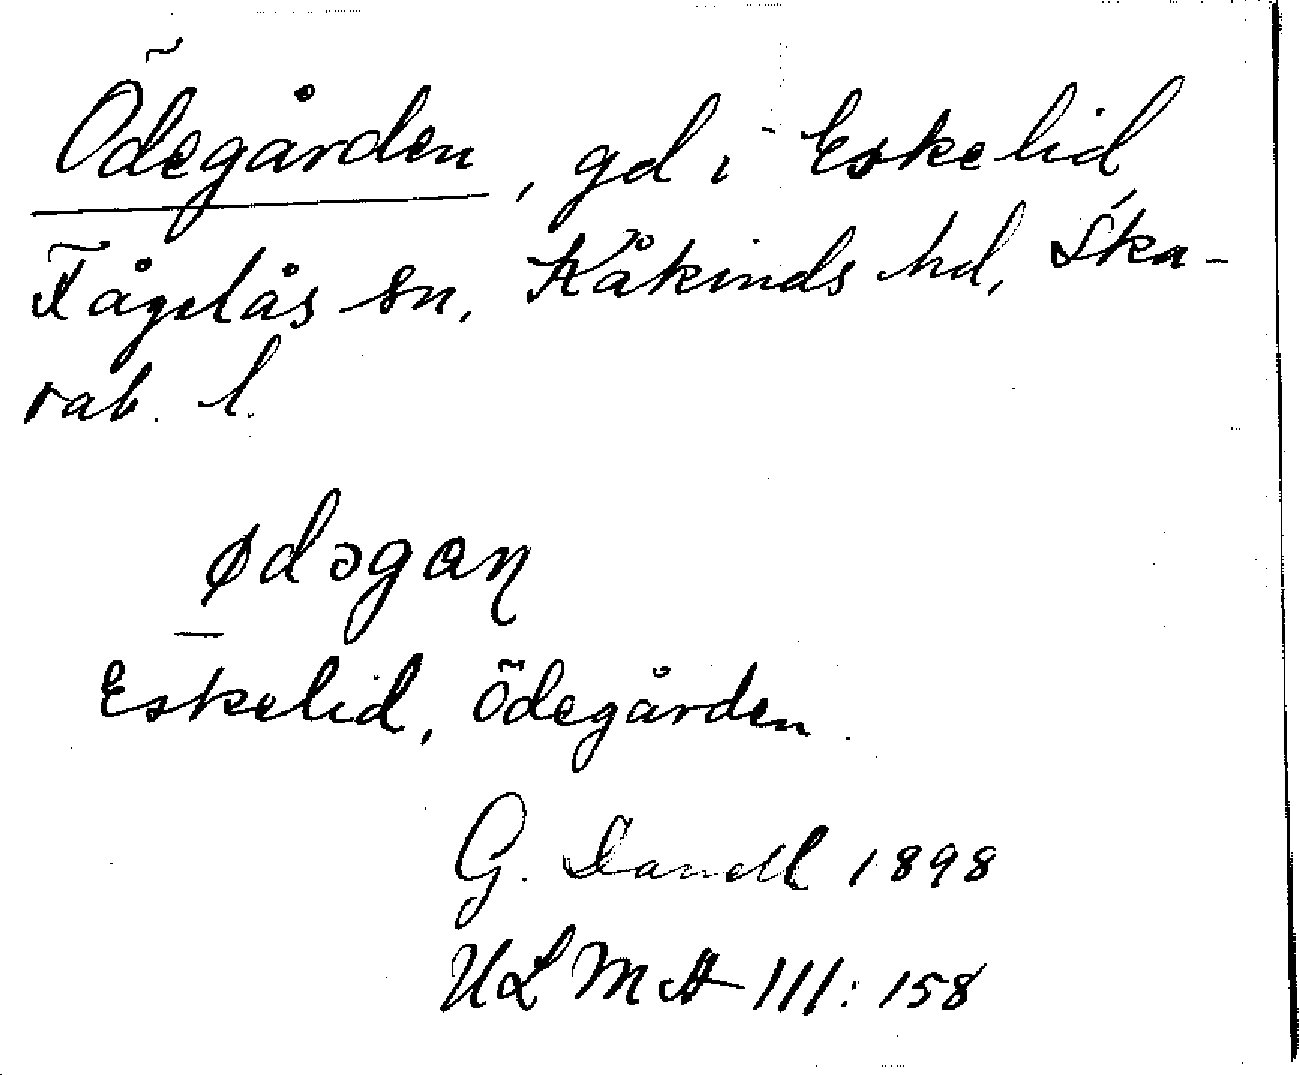 Ödegården, gd i Eskelid
Fågelås sn, Kåkinds hd, Ska-
rab. l.
ødəgaɳ
Eskelid, Ödegården.
G. Danell 1898
ULMA III: 158